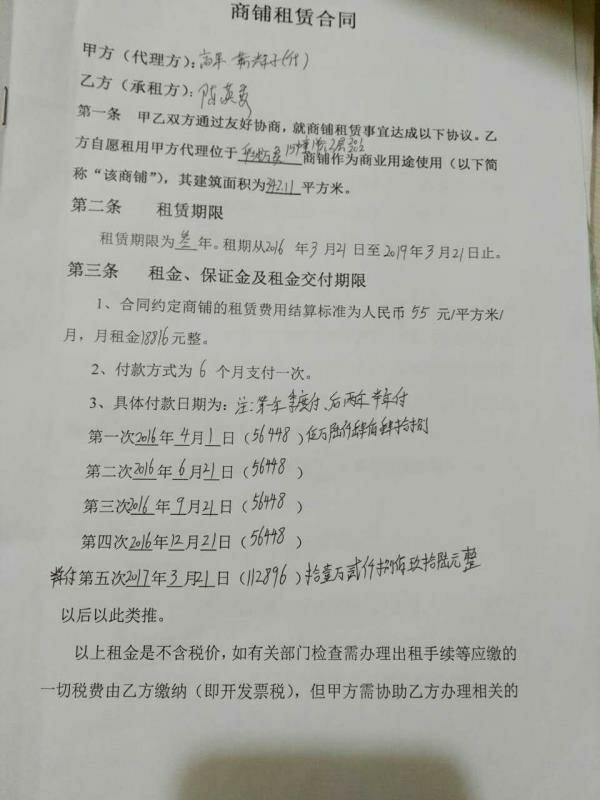 商铺租赁合同
甲方（代理方）：
乙方（承租方）：陈英
第一条 甲乙双方通过友好协商，就商铺租赁事宜达成以下协议。乙
方自愿租用甲方代理位于 商铺作为商业用途使用（以下简
称“该商铺”），其建筑面积为342.11平方米。
第二条 租赁期限
租赁期限为叁年。租期从2016年3月21日至2019年3月21日止。
第三条 租金、保证金及租金交付期限
1、合同约定商铺的租赁费用结算标准为人民币55元/平方米/
月，月租金18816元整。
2、付款方式为6个月支付一次。
3、具体付款日期为：注：第一年季度付、后两年半年付
第一次2016年4月1日（56448）伍万陆仟肆佰肆拾捌
第二次2016年6月21日（56448）
第三次2016年9月21日（56448）
第四次2016年12月21日（56448）
半年付第五次2017年3月21日（112896）拾壹万贰仟捌佰玖拾陆元整
以后以此类推。
以上租金是不含税价，如有关部门检查需办理出租手续等应缴的
一切税费由乙方缴纳（即开发票税），但甲方需协助乙方办理相关的